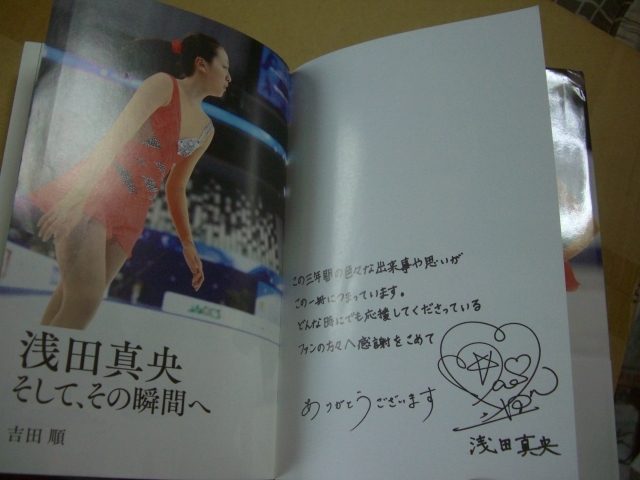 浅田真央
そして、その瞬間へ
吉田 順
この三年間の色々な出来事や思いが
この一冊につまっています。
どんな時にでも応援してくださっている
ファンの方々へ感謝をこめて
ありがとうございます
Mao
浅田真央